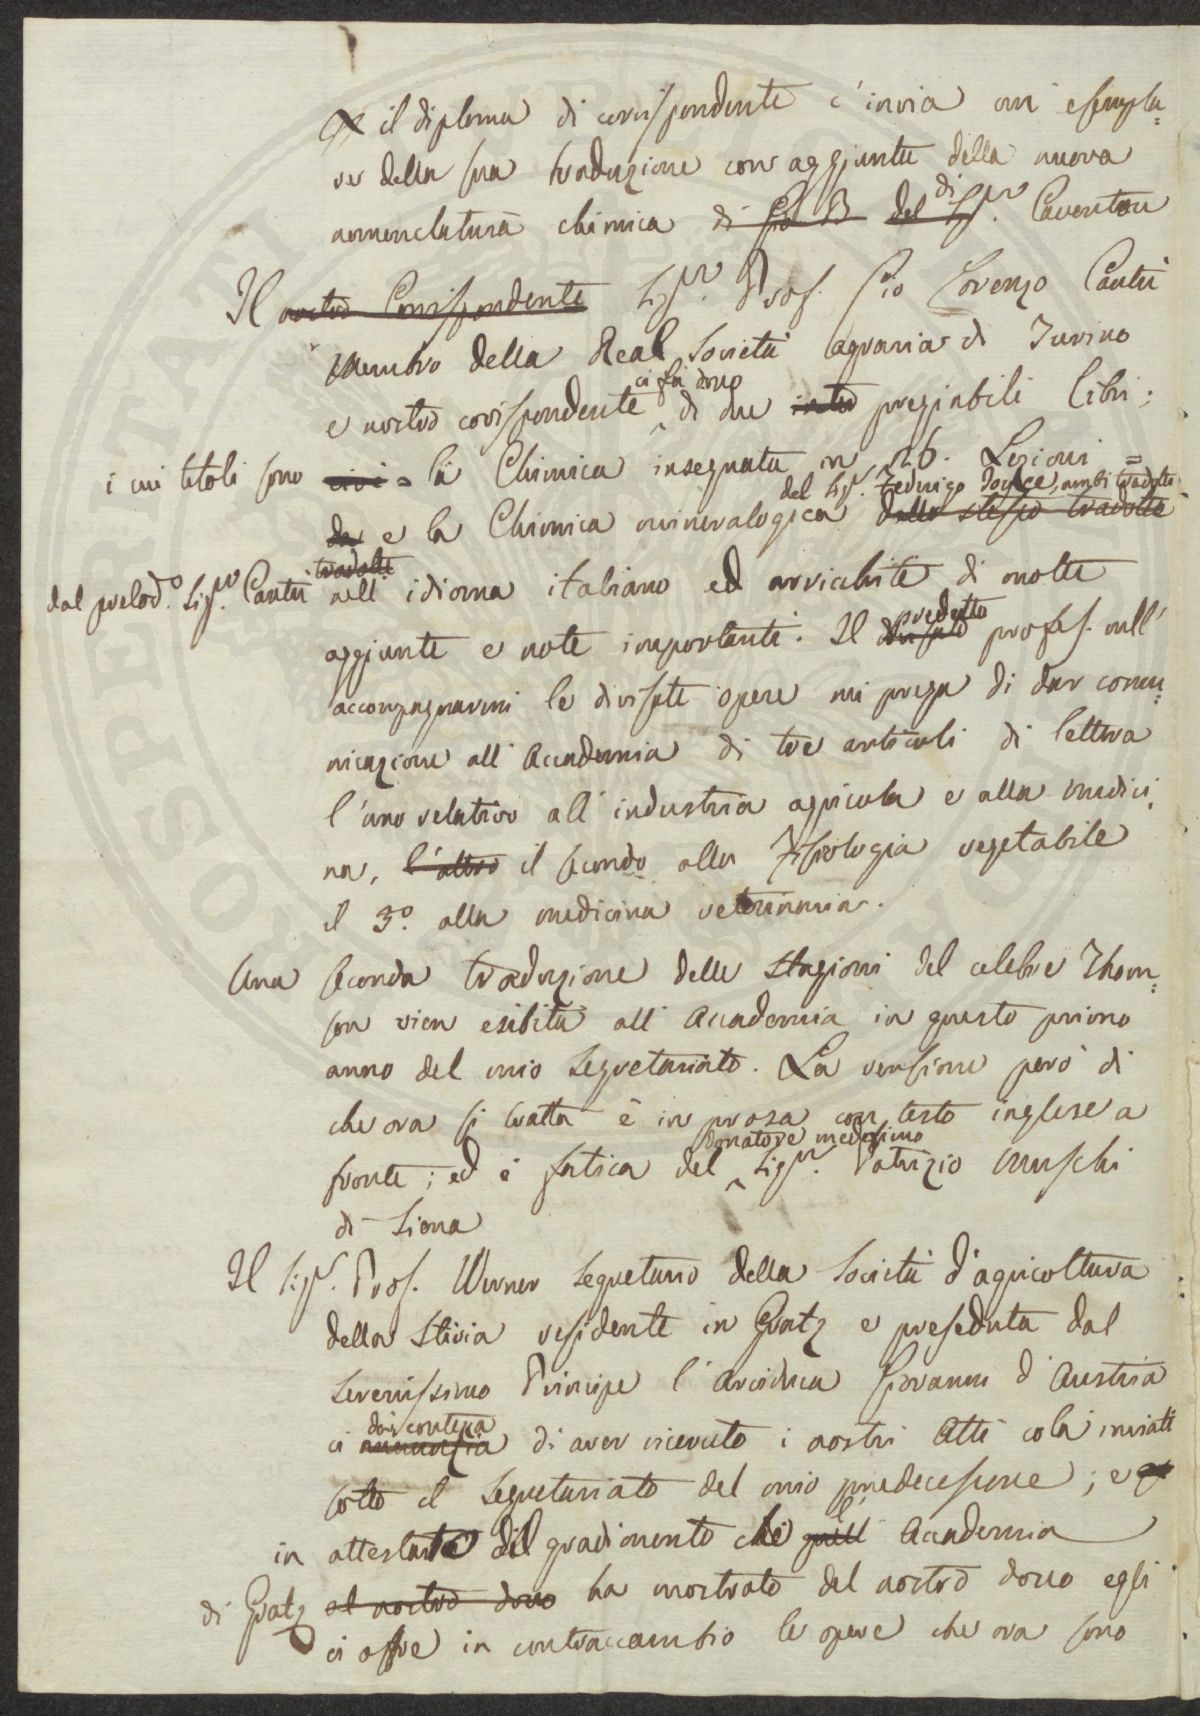 il diploma di corrispondente c'invia un' esempla=
re della sua traduzione con aggiunte della nuova
nomenclatura chimica di del di Sig.r Caventou
Il nostro Corrispondente Sig.r Prof. Pio Lorenzo Cantù
membro della Real Società agraria di Turino
ci fa dono
e nostro corrispondente di due preziabili libri;
i cui titoli sono = la Chimica insegnata in 26. Lezioni =
del Sig.r Fedrigo Joyce, ambi tradotti
e la Chimica mineralogica dello stesso tradotte
tradotte
dal prelod.o Sig.r Cantù nell' idioma italiano ed arricchite di molte
predetto
aggiunte e note importanti. Il profes. nell'
accompagnarmi le divisate opere mi prega di dar comu=
nicazione all' Accademia di tre articoli di lettera
l'uno relativo all' industria agricola e alla medici=
na, l'altro il secondo alla Fisiologia vegetabile
il 3.o alla medicina veterinaria.
Una seconda traduzione delle Stagioni del celebre Thom=
son vien esibita all' Accademia in questo primo
anno del mio Segretariato. La versione però di
che ora si tratta è in prosa con testo inglese a
donatore medesimo
fronte; ed è fatica del Sig.r Patrizio Muschi
di Siena
Il Sig.r Prof. Werner Segretario della Società d'agricoltura
della Stiria residente in Gratz e preseduta dal
Serenissimo Principe l'Arciduca Giovanni d'Austria
dà contezza
ci annunzia di aver ricevuto i nostri Atti colà inviati
sotto il Segretariato del mio predecessore; e
in attestato del gradimento che quell' l' Accademia
di Gratz al nostro dono ha mostrato del nostro dono egli
ci offre in contraccambio le opere che ora sono